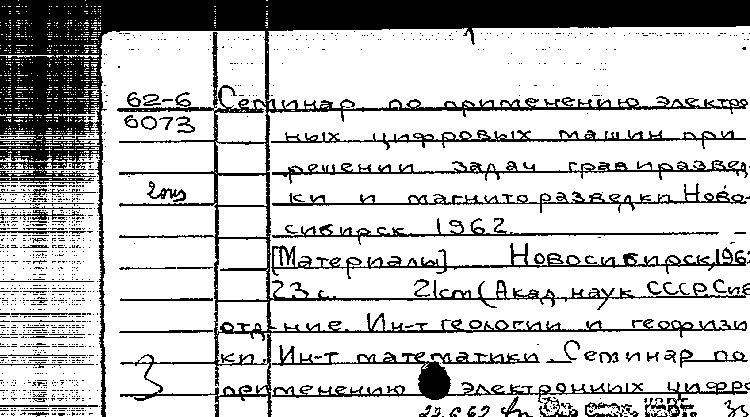 1
62-6 Семинар по применению электрон
6073
ных цифровых машин при
решении задач гравиразвед-
ки и магниторазведки Ново-
2 экз
сибирск 1962
[Материалы] Новосибирск, 1962
23 с. 21 cm (Акад. наук СССР. Сиб
отд-ние. Ин-т геологии и геофизи
ки. Ин-т математики. Семинар по
3
применению электронных цифро